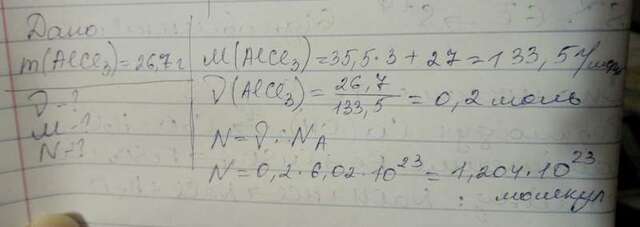 Дано
m(AlCl₃)=26,7г
ν-?
M-?
N-?
M(AlCl₃)=35,5·3+27=133,5г/моль
ν(AlCl₃)=26,7/133,5=0,2моль
N=ν·N_A
N=0,2·6,02·10²³=1,204·10²³
молекул